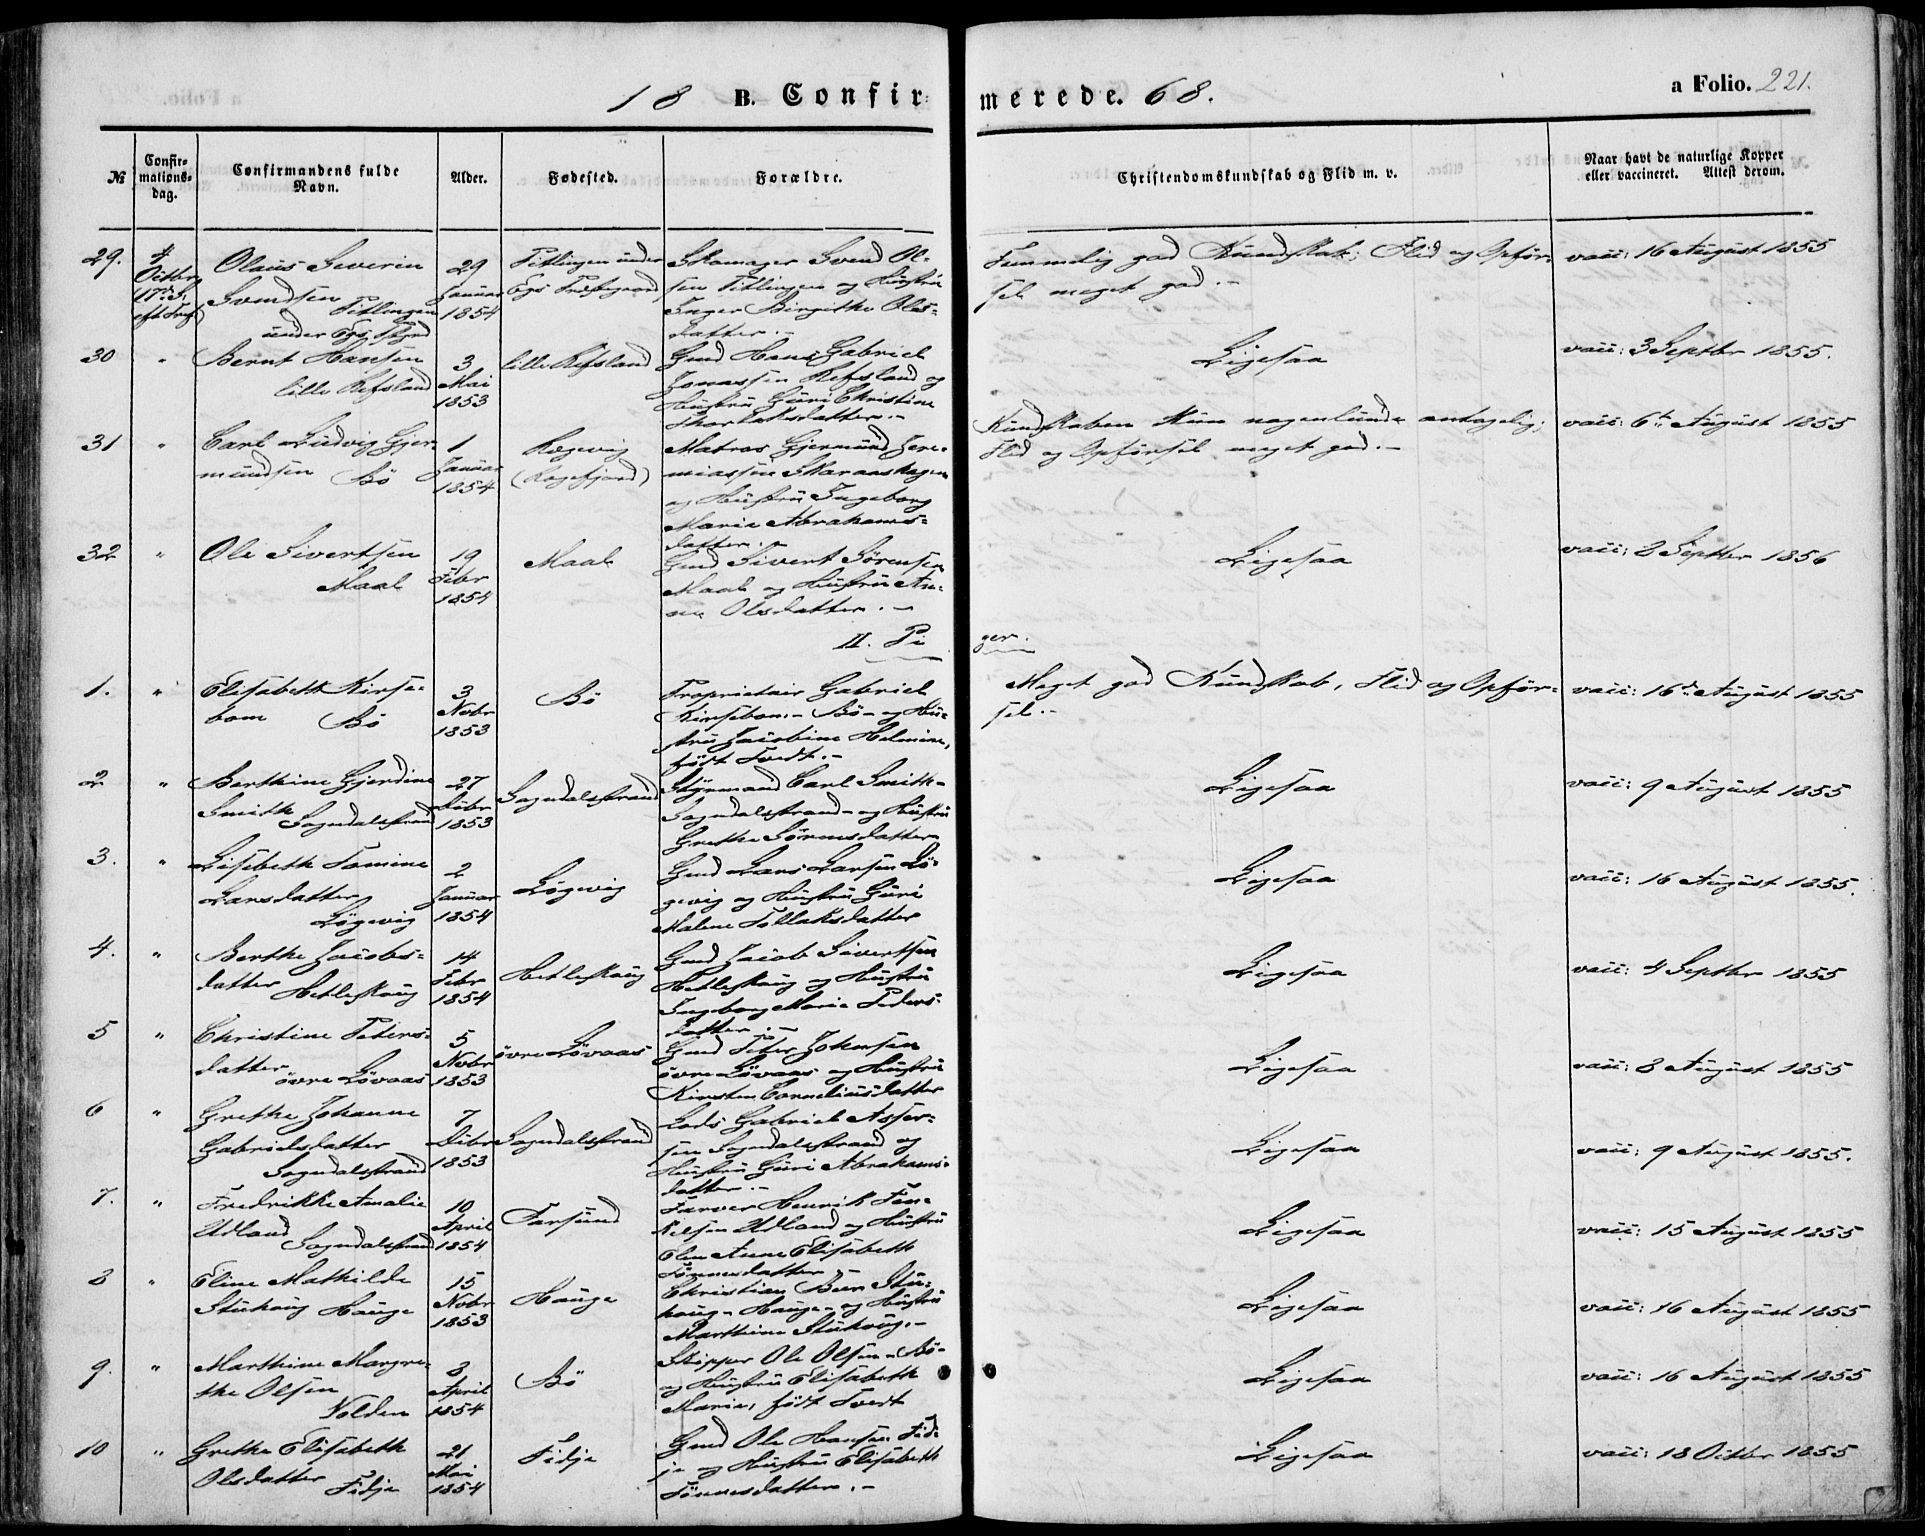 18 B. Confirmerede. 68. a Folio. 221.
№ Confirmationsdag. Confirmandens fulde Navn. Alder. Fødested. Forældre. Christendomskundskab og Flid m. v. Naar havt de naturlige Kopper eller vaccineret. Attest derom.
29. 4 Octbr 17de S. eft Tref
Olaus Severin
Svendsen Titlingen
under Egs Pgrd
29 Januar 1854
Titlingen under
Egs Præstegaard
Skomager Svend Ol-
sen Titlingen og Hustru
Inger Birgithe Ols-
datter.-
Temmelig god Kundskab; Flid og Opför-
sel meget god.-
vacc: 16 August 1855
30 "
Bernt Hansen
lille Refsland
3 Mai 1853
lille Refsland
Gmd Hans Gabriel
Jonassen Refsland og
Hustru Guri Christine
Thorlaksdatter.-
Ligesaa
vacc: 3 Septbr 1855.
31 "
Carl Ludvig Gjer-
mundsen Bö
1 Januar 1854
Rægevig
(Rægefjord)
Matros Gjermund Jere-
miassen Skaraashagen
og Hustru Ingeborg
Marie Abrahams-
datter.-
Kundskaben kun nogenlunde antagelig;
Flid og Opförsel meget god.-
vacc: 6te August 1855
32 "
Ole Sivertsen
Maal
19 Febr 1854
Maal
Gmd Sivert Sörensen
Maal og Hustru An-
ne Olsdatter.-
Ligesaa
vacc: 8 Septbr 1856
II. Piger.
1. "
Elisabeth Kirse-
bom Bö
3 Novbr 1853
Bö
Proprietair Gabriel
Kirsebom - Bö - og Hu-
stru Jacobine Helmine,
födt Tvedt.-
Meget god Kundskab, Flid og Opför-
sel.-
vacc: 16de August 1855
2 "
Berthine Gjerdine
Smith Sogndalsstrand
27 Decbr 1853
Sogndalsstrand
Styrmand Carl Smith -
Sogndalsstrand - og Hustru
Grethe Sörensdatter
Ligesaa
vacc: 9 August 1855
3. "
Lisebeth Tomine
Larsdatter
Lögevig
2 Januar 1854
Lögevig
Gmd Lars Larsen Lö-
gevig og Hustru Guri
Malene Tollaksdatter
Ligesaa
vacc: 16 August 1855.
4. "
Berthe Jacobs-
datter Hetleskoug
14 Febr 1854
Hetleskoug
Gmd Jacob Sivertsen
Hetleskoug og Hustru
Ingeborg Marie Peders-
datter.-
Ligesaa
vacc: 4 Septbr 1855
5 "
Christine Peters-
datter övre Lövaas
5 Novbr 1853
övre Lövaas
Gmd Peter Johnsen
övre Lövaas og Hustru
Kirsten Corneliusdatter
Ligesaa
vacc: 8 August 1855
6 "
Grethe Johanne
Gabrielsdatter
Sogndalsstrand
7 Decbr 1853
Sogndalsstrand
Lods Gabriel Asser-
sen Sogndalsstrand og
Hustru Guri Abrahams-
datter.-
Ligesaa
vacc: 9 August 1855.
7. "
Fredrikke Amalie
Udland Sogndalsstrand
10 April 1854
Farsund
Farver Henrik Ten-
nelsen Udland og Hustru
Elen Anne Elisabeth
Tönnesdatter
Ligesaa
vacc: 15 August 1855
8 "
Eline Mathilde
Stuhoug Hauge
15 Novbr 1853
Hauge
Christian Beer Stu-
houg - Hauge - og Hustru
Marthine Stuhoug.-
Ligesaa
vacc: 16 August 1855
9. "
Marthine Margre-
the Olsen
Volden
8 April 1854
Bö
Skipper Ole Olsen - Bö -
og Hustru Elisabeth
Marie, födt Tvedt
Ligesaa
vacc: 16 August 1855
10 "
Grethe Elisabeth
Olsdatter Fidje
21 Mai 1854
Fidje
Gmd Ole Hansen Fid-
je og Hustru Elisabeth
Tönnesdatter.-
Ligesaa
vacc: 18 Octbr 1855